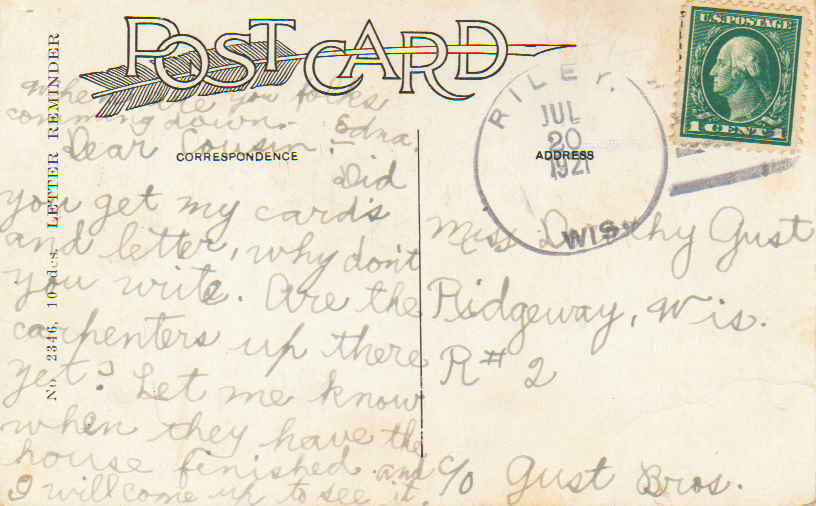 POST CARD
When are you folks
comming down. Edna.
Dear Cousin:—
CORRESPONDENCE
Did
you get my card's
and letter, why don't
you write. Are the
carpenters up there
yet? Let me know
when they have the
house finished and
I will come up to see it.
No. 2346, 10 des. LETTER REMINDER
ADDRESS
RILEY.
JUL
20
1921
WIS.
U.S. POSTAGE
1 CENT 1
Miss Dorothy Gust
Ridgeway, Wis.
R # 2
c/o Gust Bros.